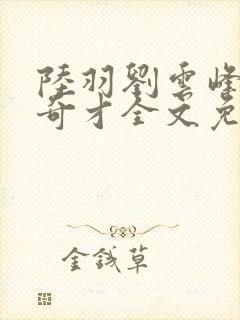 陸羽劉雲峰
奇才全文免
金錢草